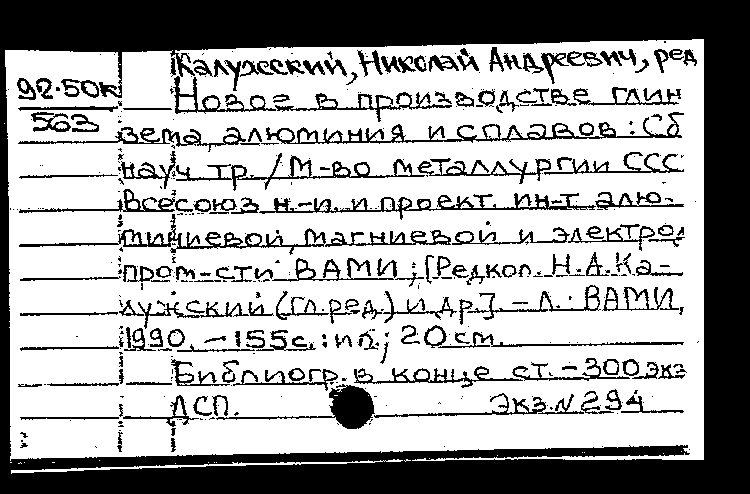 Калужский, Николай Андреевич, ред
92-50к
563
Новое в производстве глин
зема, алюминия и сплавов: Сб
науч тр. / М-во металлургии ССС
Всесоюз н.-и. и проект. ин-т алю-
миниевой, магниевой и электрод
пром-сти ВАМИ; [Редкол. Н.А.Ка-
лужский (гл.ред.) и др.]. - Л.: ВАМИ,
1990. - 155с.: ил.; 20 см.
Библиогр. в конце ст. - 300 экз
ДСП. Экз.N 294